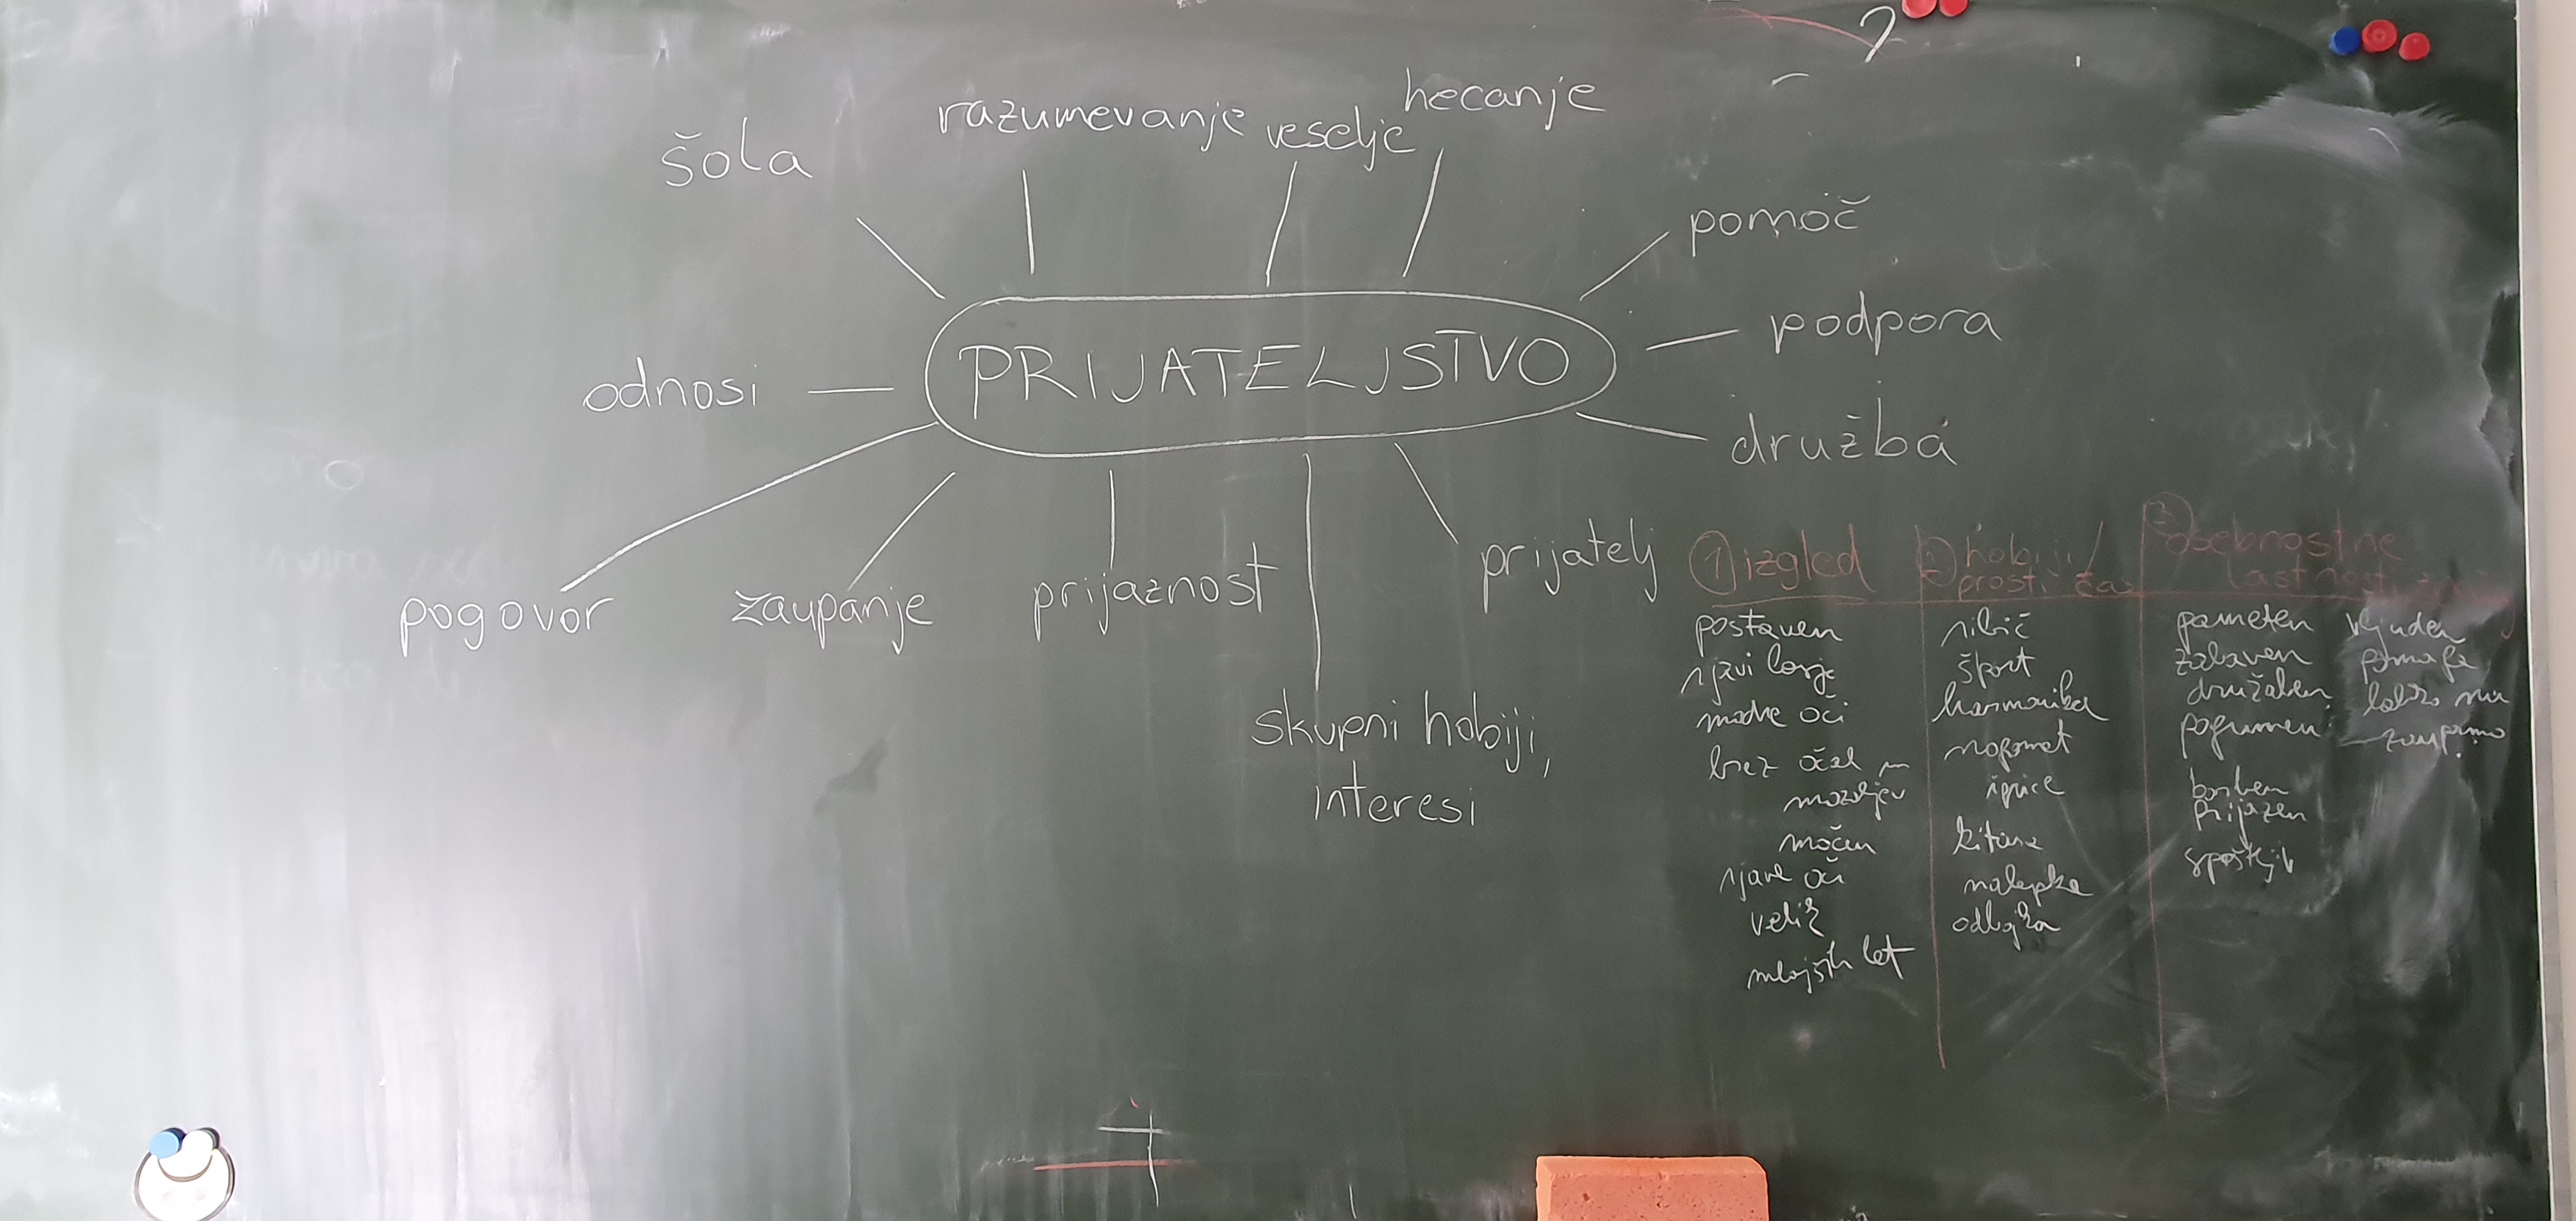 ?
hecanje
razumevanje
veselje
šola
pomoč
podpora
PRIJATELJSTVO
odnosi
družba
prijatelj
pogovor
zaupanje
prijaznost
skupni hobiji,
interesi
1 izgled
postaven
rjavi lasje
modre oči
brez očal in
mozoljev
močan
rjave oči
velik
mlajših let
2 hobiji/
prosti čas
ribič
šport
harmonika
nogomet
igrice
kitara
odbojka
3 osebnostne
lastnosti
pameten
zabaven
družaben
pogumen
borben
prijazen
spoštljiv
vljuden
pomaga
lahko mu
zaupamo